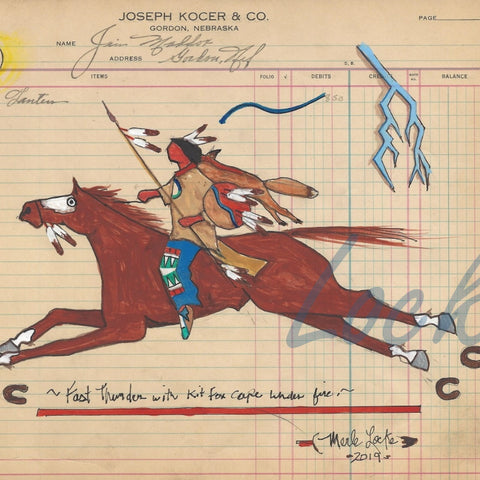 JOSEPH KOCER & CO.
GORDON, NEBRASKA
PAGE
NAME Jim Maddox
ADDRESS Gordon, Neb
ITEMS FOLIO √ DEBITS D. B. CREDITS BALANCE
Lantern 850
Lock
~ Fast Thunder with Kit Fox Cape under fire. ~
Merle Locke
-2019-